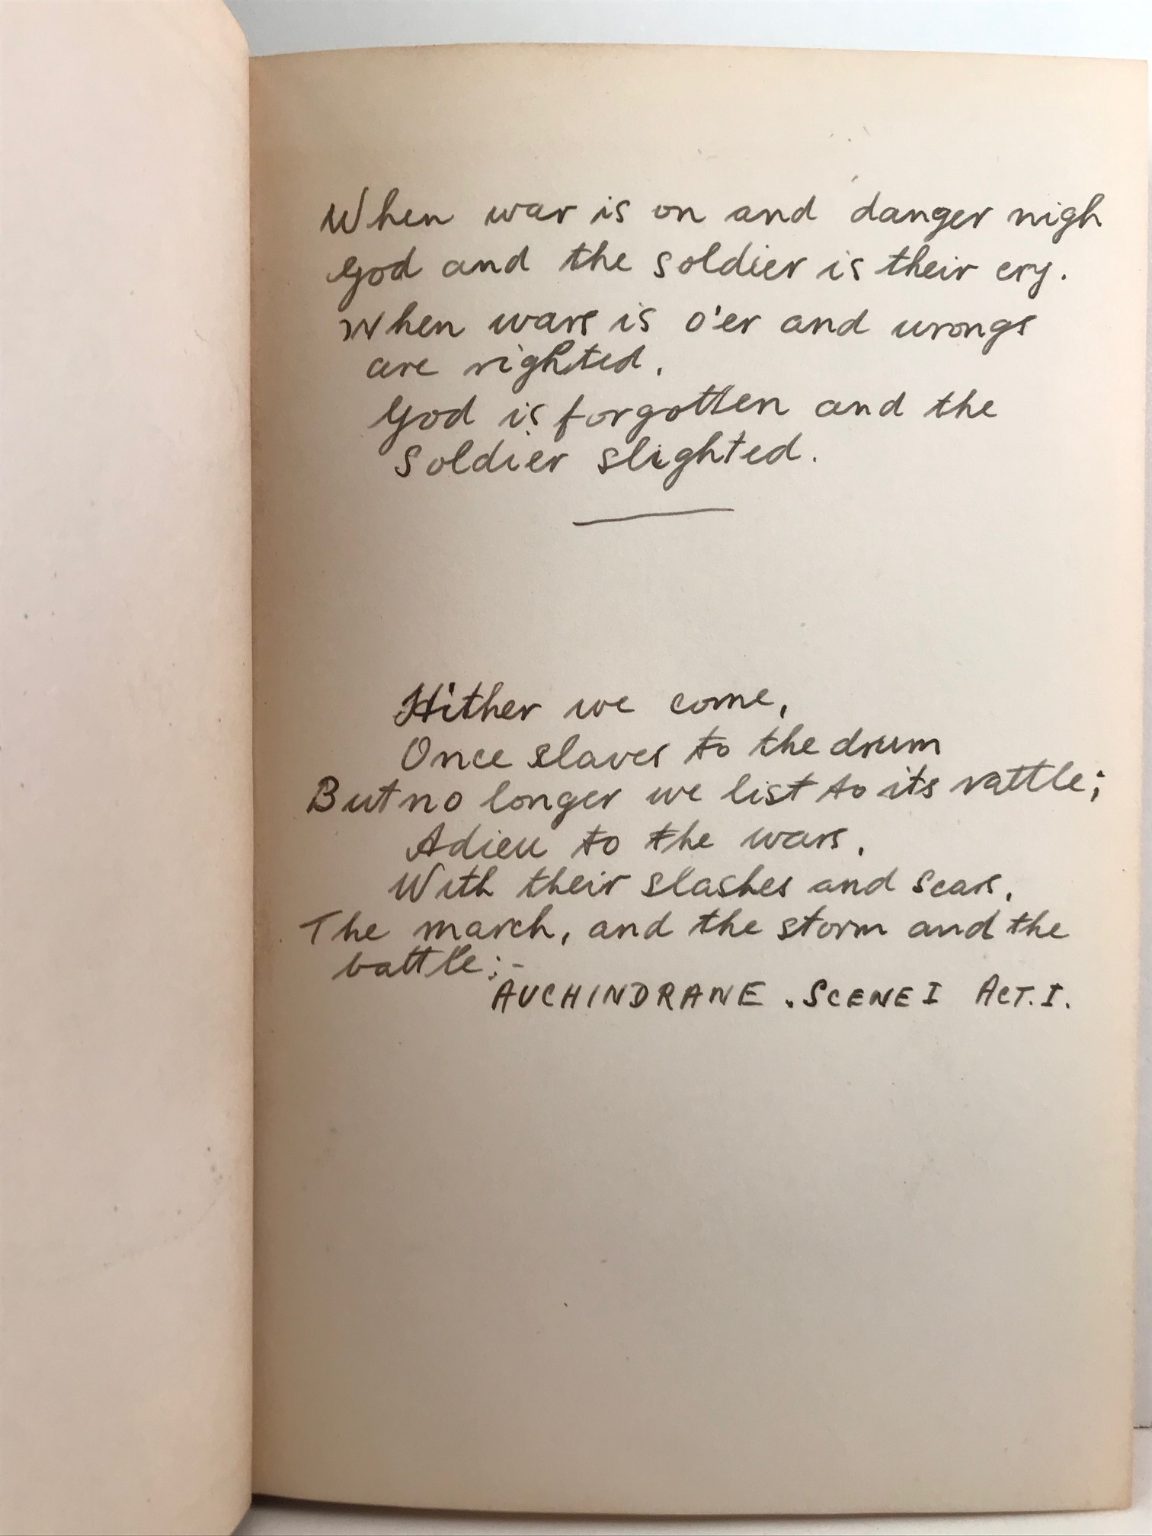 When war is on and danger nigh
God and the soldier is their cry.
When wars is o'er and wrongs
are righted.
God is forgotten and the
Soldier slighted.
Hither we come,
Once slaves to the drum
But no longer we list to its rattle;
Adieu to the wars,
With their slashes and scars,
The march, and the storm and the
battle:-
AUCHINDRANE. SCENE I ACT. I.